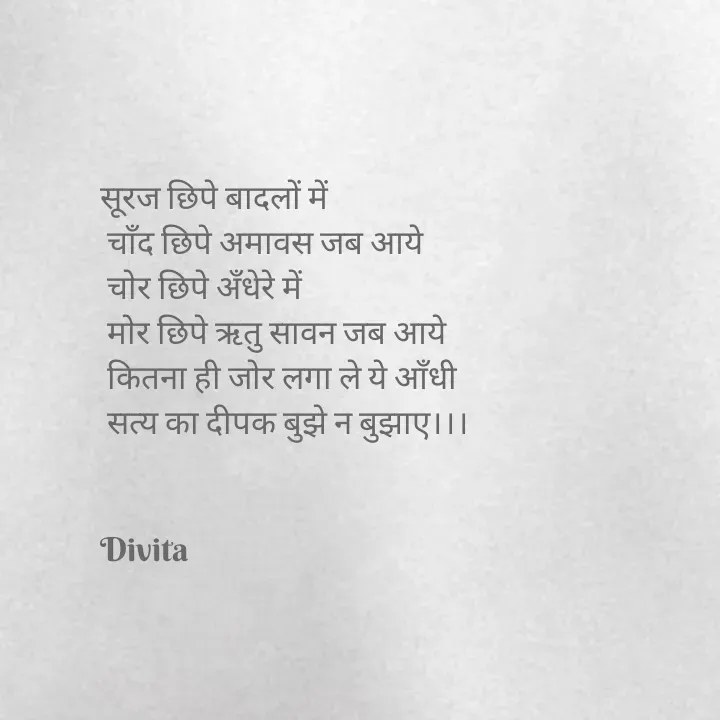 सूरज छिपे बादलों में
चाँद छिपे अमावस जब आये
चोर छिपे अँधेरे में
मोर छिपे ऋतु सावन जब आये
कितना ही जोर लगा ले ये आँधी
सत्य का दीपक बुझे न बुझाए।।।
Divita